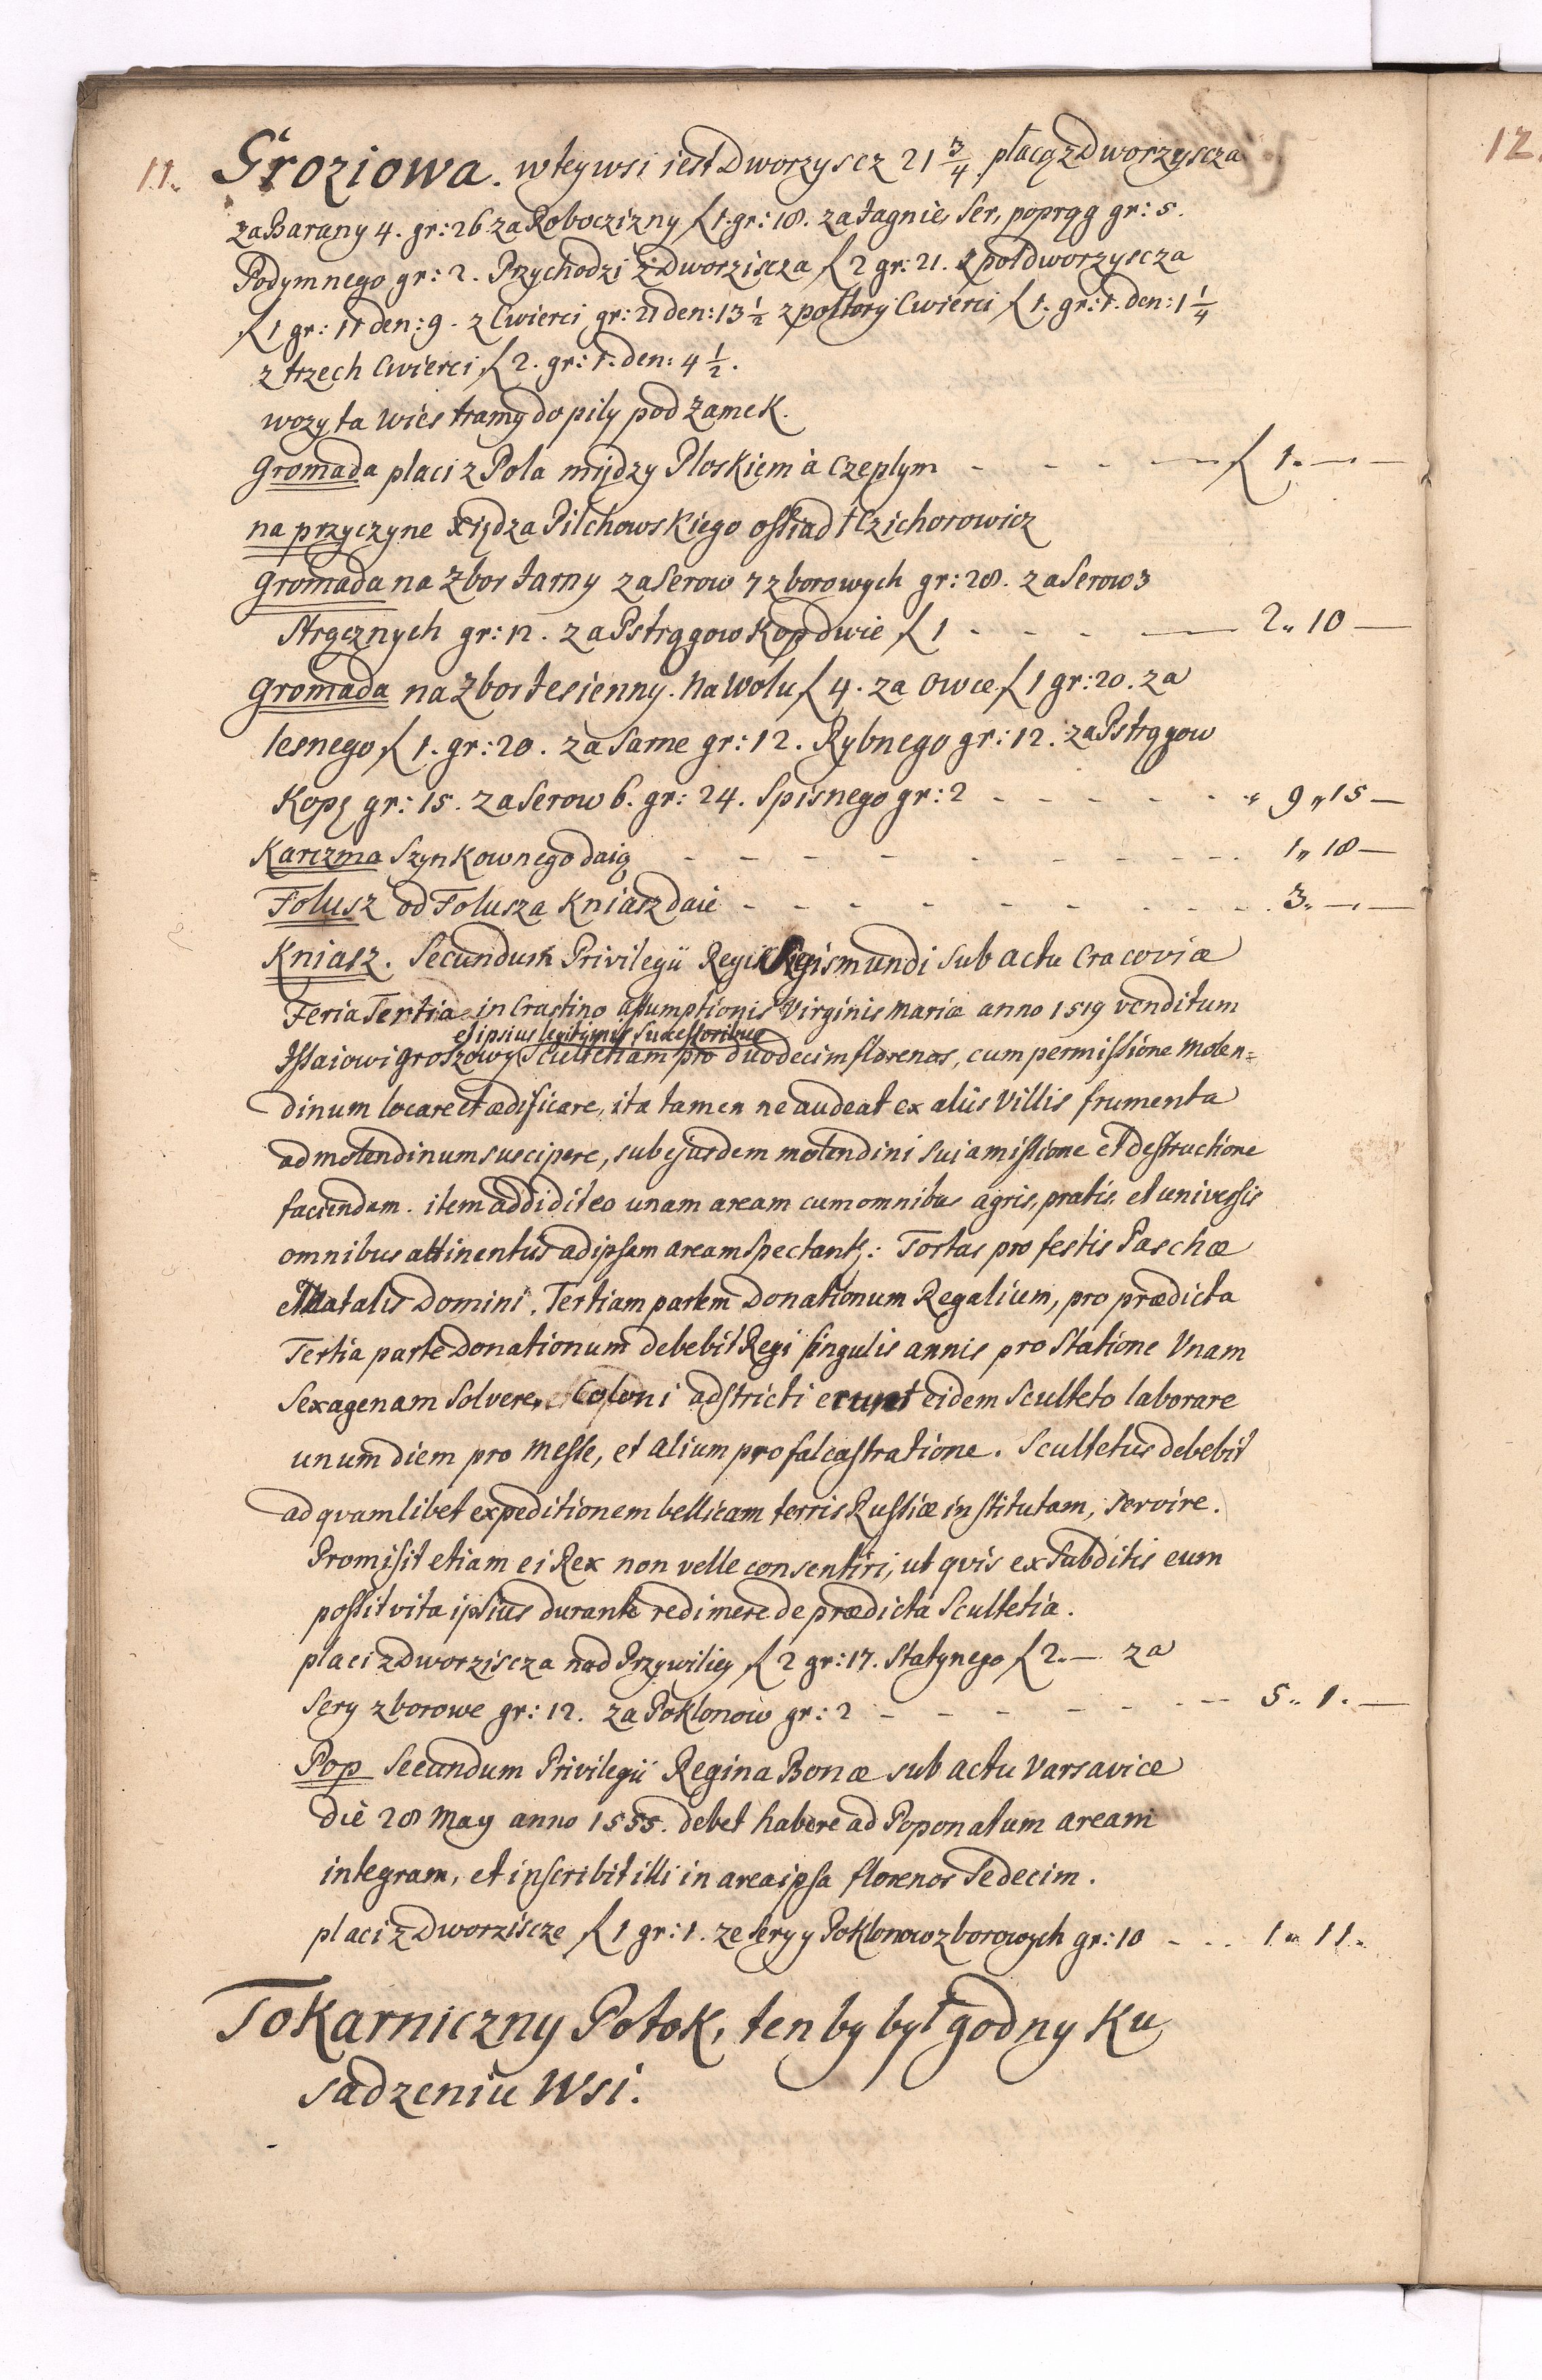 11. Groziowa. w tey wsi iest Dworzyscz 21 3/4 płacą z Dworzyscza
za Barany 4. gr: 26 za Roboczizny ƒ 1. gr: 18. za Jagnie, Ser, poprąg gr: 5.
Podymnego gr: 2. Przychodzi z Dworziscza ƒ 2 gr: 21. z poł dworzyscza
ƒ 1 gr: 11 den: 9. z Cwierci gr: 21 den: 13 1/2 z połtory Cwierci ƒ 1. gr: 1. den: 1 1/4
z trzech Cwierci ƒ 2. gr: 1. den: 4 1/2.
wozy ta Wies tramy do pily pod Zamek.
Gromada placi z Pola między Ploskiem à Czeplym - - - — ƒ 1. — —
na przyczyne Xiędza Pilchowskiego ossiadł Czichorowicz
Gromada na Zbor Jarny za Serow 7 zborowych gr: 28. za Serow 3
Strącznych gr: 12. za Pstrągow Kop dwie ƒ 1 - - - - — 2 „ 10 —
Gromada na Zbor Jesienny. Na Wołu ƒ 4. za Owce ƒ 1 gr: 20. za
lesnego ƒ 1. gr: 20. za Sarne gr: 12. Rybnego gr: 12. za Pstrągow
Kopę gr: 15. za Serow 6. gr: 24. Spisnego gr: 2 - - - - - 9 „ 15 —
Karczma Szynkownego daią - - - - - - - - 1 „ 18 —
Folusz od Folusza Kniasz daie - - - - - - - - 3. — —
Kniasz. Secundum Privilegii Regis Sigismundi sub actu Cracoviæ
Feria Tertia in Crastino assumptionis Virginis Mariæ anno 1519 venditum
et ipsius legitymis Successoribus
Issaiowi Groszowy Scultetiam pro duodecim florenos, cum permissione Molen=
dinum locare et ædificare, ita tamen ne audeat ex aliis Villis frumenta
ad molendinum suscipere, sub ejusdem molendini sui amissione et Destructione
faciendam. item addidit eo unam aream cum omnibus agris, pratis, et universis
omnibus attinentiis ad ipsam aream spectant: Tortas pro festis Paschæ
et Natalis Domini. Tertiam partem Donationum Regalium, pro prædicta
Tertia parte Donationum debebit Regi singulis annis pro Statione Unam
Sexagenam Solvere, et Coloni adstricti erunt eidem Sculteto laborare
unum diem pro Messe, et alium pro falcastratione. Scultetus debebit
ad qvamlibet expeditionem bellicam terris Russiæ institutam, servire.
Promisit etiam ei Rex non velle consentiri, ut qvis ex Subditis eum
possit vita ipsius durante redimere de prædicta Scultetia.
placi z Dworziscza nad Przywiliey ƒ 2 gr: 17. Statynego ƒ 2. — za
Sery zborowe gr: 12. za Poklonow gr: 2 - - - - - — 5 „ 1. —
Pop Secundum Privilegii Regina Bonæ sub actu Varsaviæ
die 28 May anno 1555. debet habere ad Poponatum aream
integram, et inscribit illi in area ipsa florenos Sedecim.
placi z Dworziscze ƒ 1 gr: 1. ze Sery y Poklonow zborowych gr: 10 - - - 1 „ 11.
Tokarniczny Potok, ten by był godny ku
sadzeniu Wsi.
12.